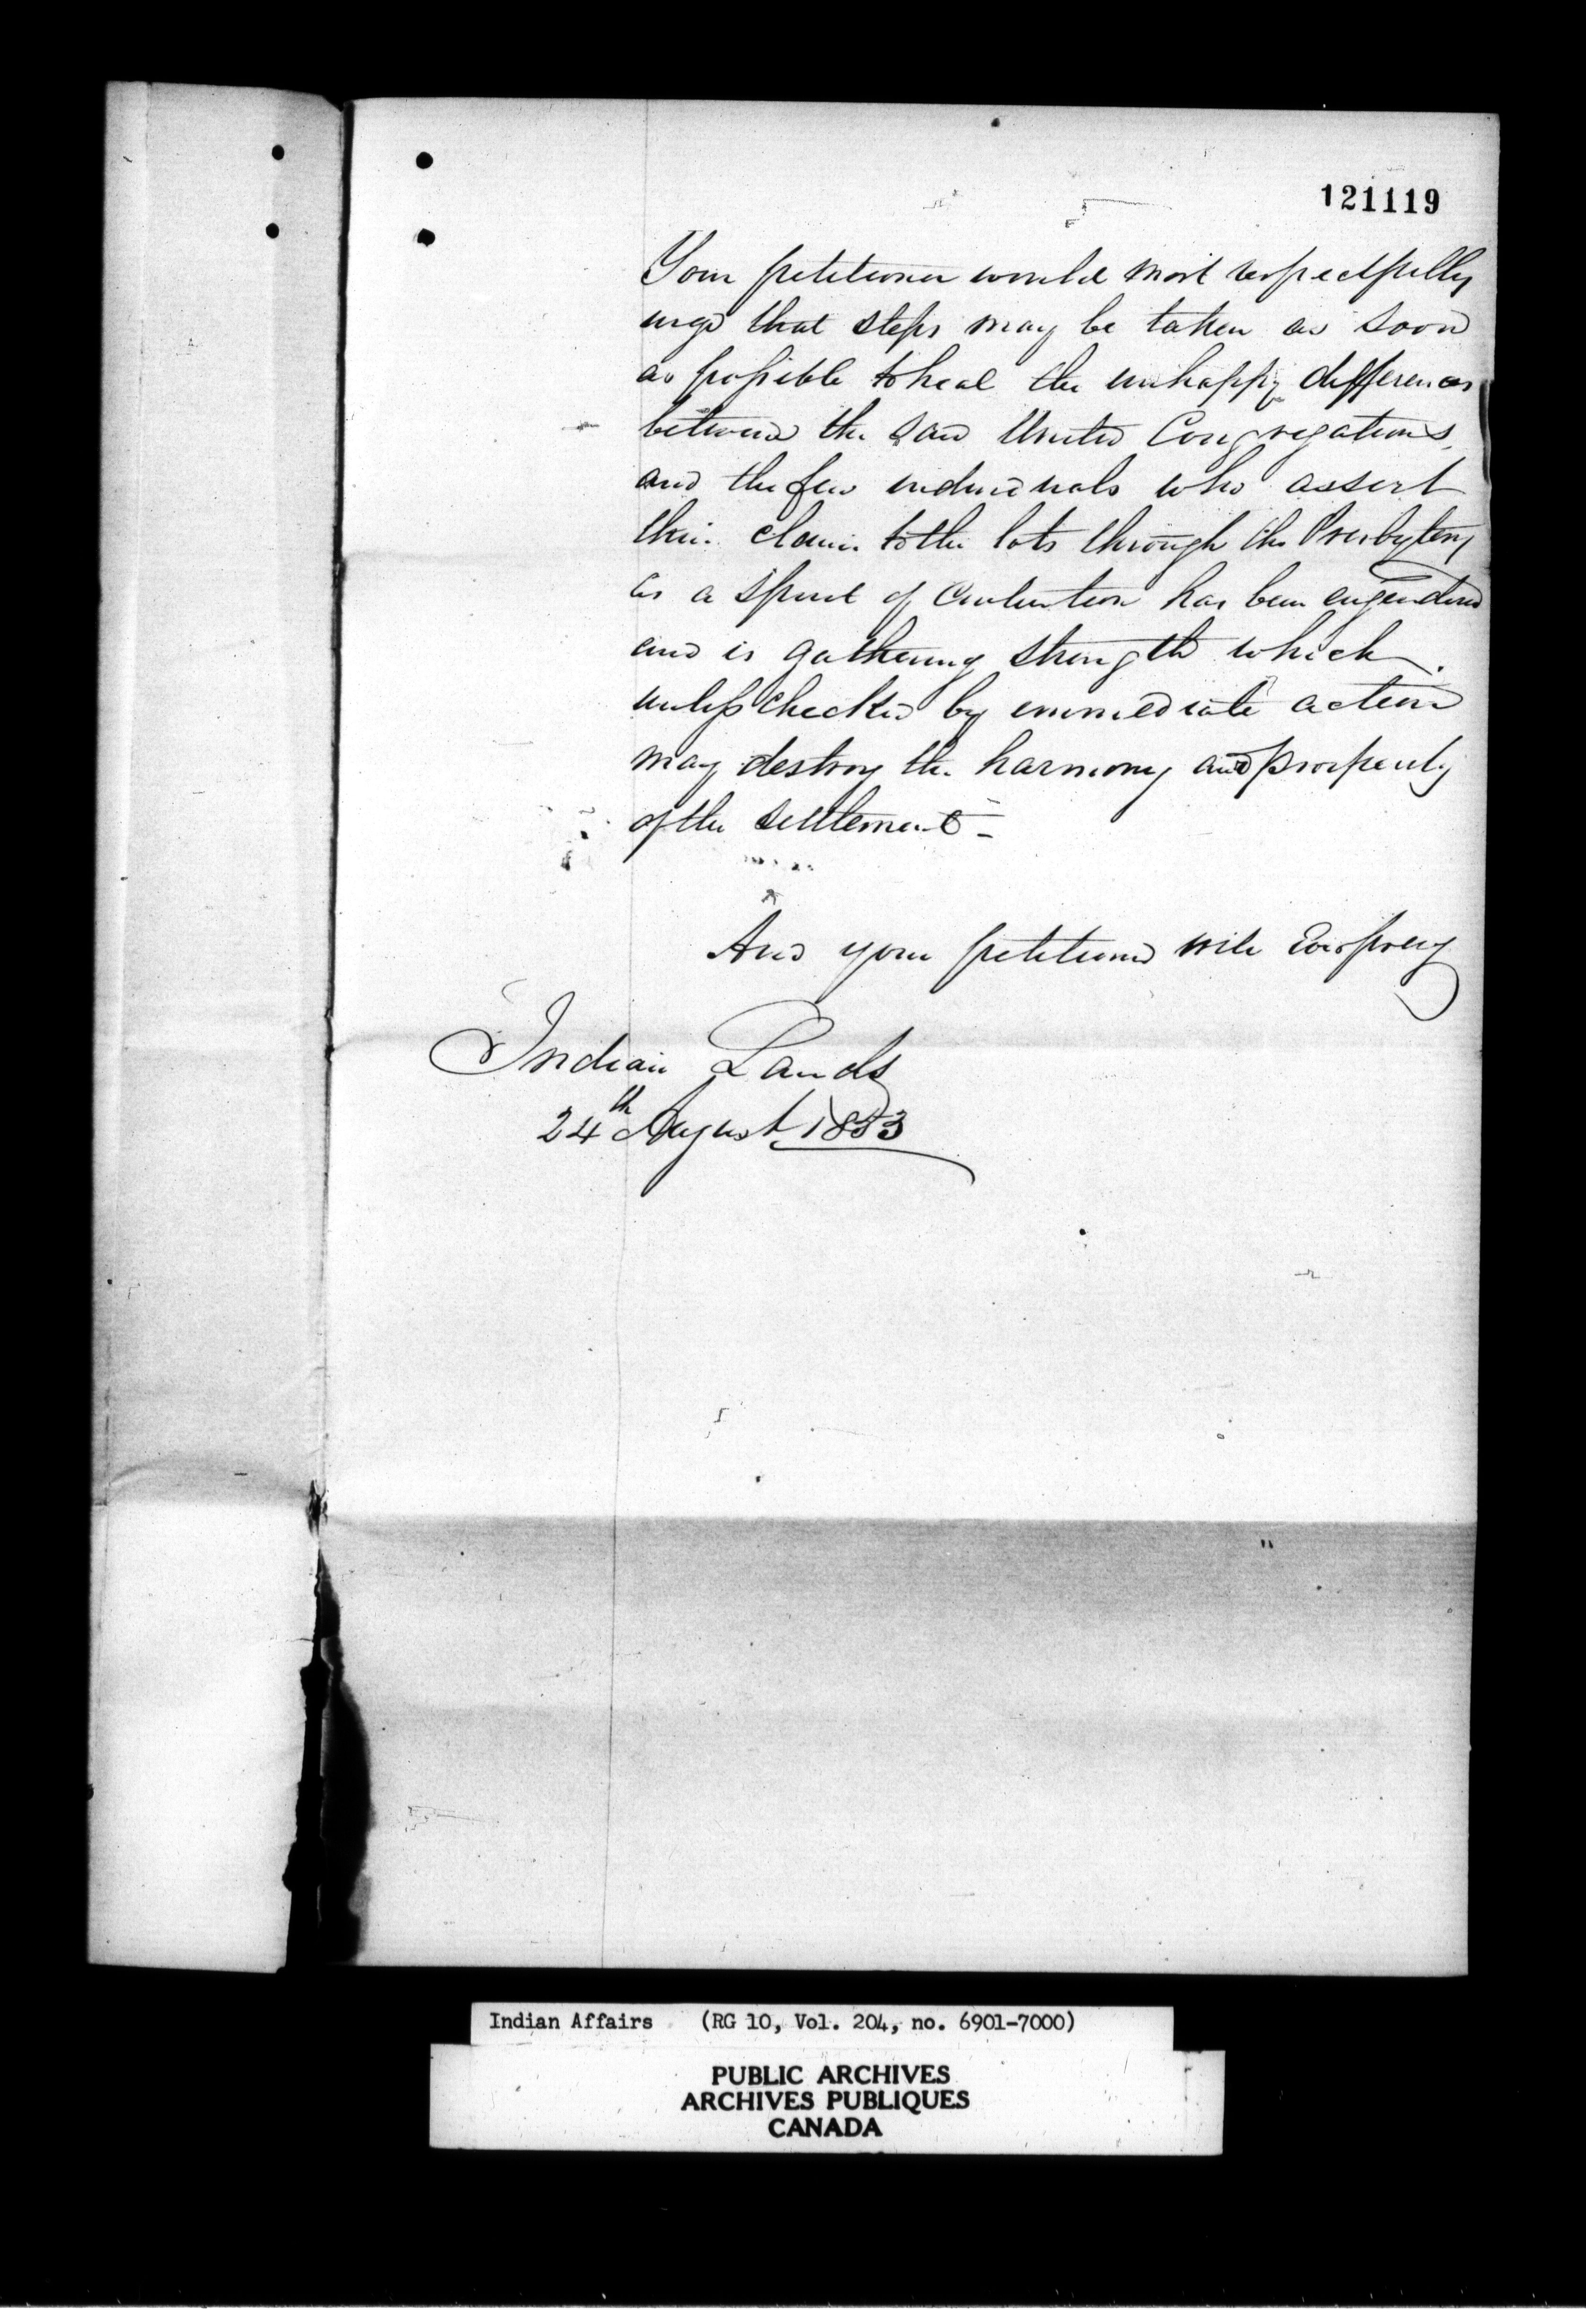 121119
Your petitioner would most respectfully
urge that steps may be taken as soon
as possible to heal the unhappy differences
between the said United Congregations,
and the few individuals who assert
their claim to the lots through the Presbytery
as a spirit of contention has been engendered
and is gathering strength which
unless checked by immediate action
may destroy the harmony and prosperity
of the settlement -
And your petitioners will Ever pray
Indian Lands
24th August 1853
Indian Affairs (RG 10, Vol. 204, no. 6901-7000)
PUBLIC ARCHIVES
ARCHIVES PUBLIQUES
CANADA